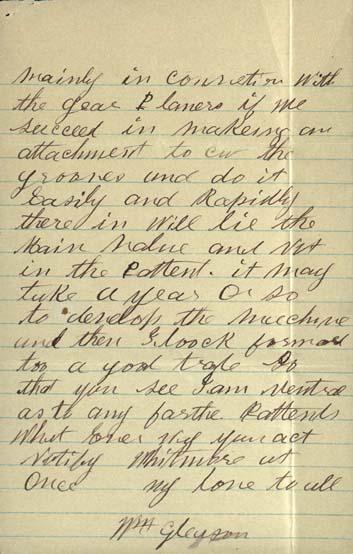 mainly in connetion with
the gear Planers if we
succeed in making an
attachment to cut the
grooves and do it
Easily and Rapidly
there in will lie the
Main Value and Not
in the Pattent. it may
take a year or so
to develop the machine
and then I loock forward
too a good trade So
that you see I am
as to any farthe Pattents
What Ever way you act
Notify Whitmore at
Once my love to all
Wm Gleason